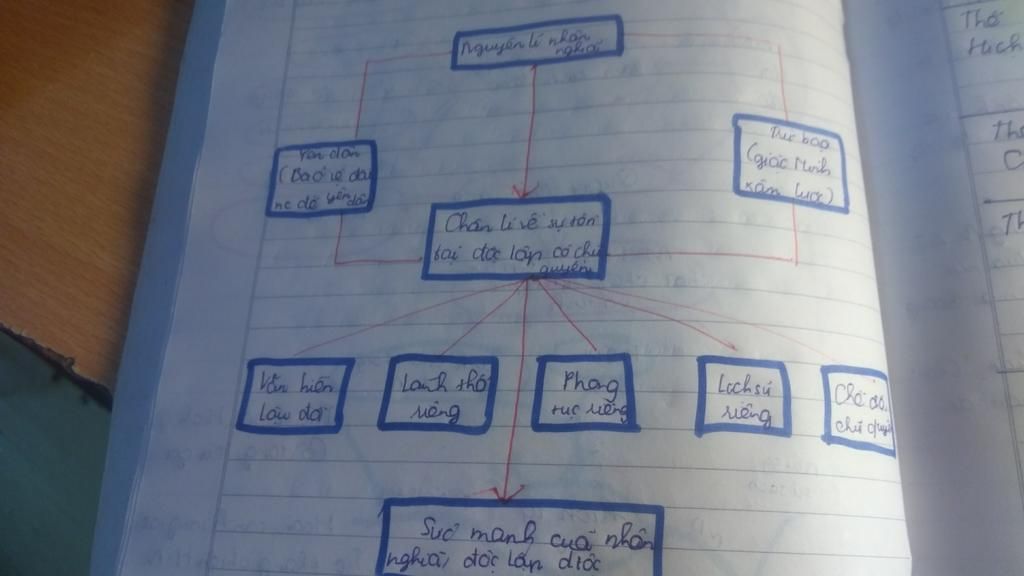 Nguyên lí nhân
nghĩa
Yên dân
(Bảo vệ đất
nc để yên dân
Trừ bạo
(giặc Minh
xâm lược)
Chân lí về sự tồn
tại độc lập có chủ
quyền
Văn hiến
lâu đời
Lãnh thổ
riêng
Phong
tục riêng
Lịch sử
riêng
Chế độ,
chủ quyền
Sức mạnh của nhân
nghĩa, độc lập dtộc
Thố
Hịch